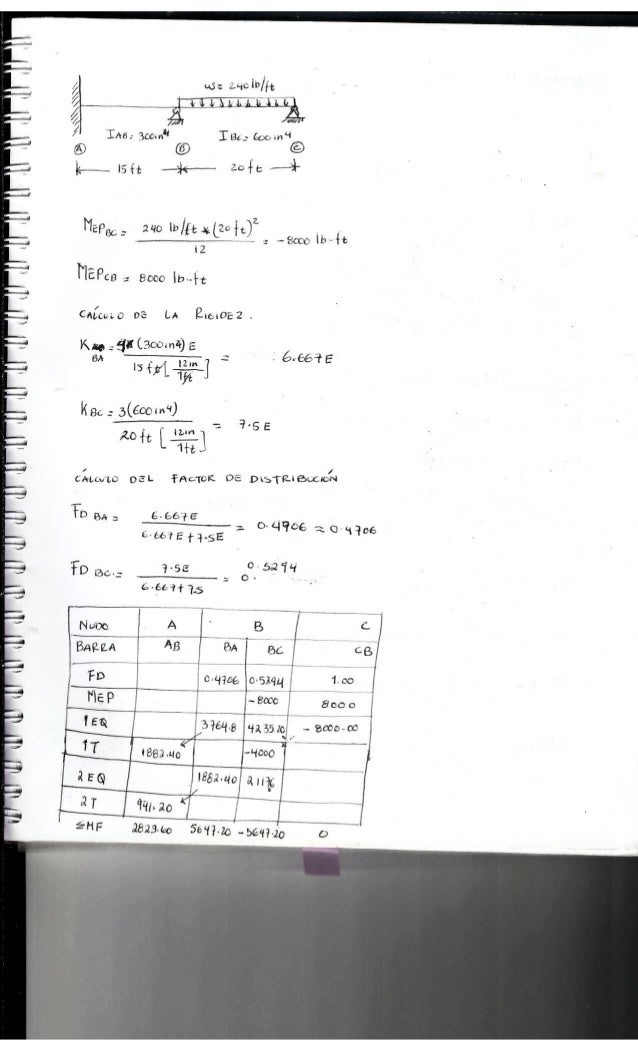 w= 240 lb/ft
IAB= 300in4 IBC= 600in4
A B C
15 ft 20 ft
MEPBC = 240 lb/ft * (20ft)2 / 12 = -8000 lb-ft
MEPCB = 8000 lb-ft
CÁLCULO DE LA RIGIDEZ.
KBA = 4(300in4)E / 15ft[12in/1ft] = 6.667E
KBC = 3(600in4) / 20ft [12in/1ft] = 7.5E
CÁLCULO DEL FACTOR DE DISTRIBUCIÓN
FD BA = 6.667E / 6.667E+7.5E = 0.4706 ≈ 0.4706
FD BC.= 7.5E / 6.667+7.5 = 0.5294
NUDO A B C
BARRA AB BA BC CB
FD 0.4706 0.5294 1.00
MEP -8000 8000
1EQ 3764.8 4235.20 -8000.00
1T 1882.40 -4000
2EQ 1882.40 2117.6
2T 941.20
ΣMF 2823.60 5647.20 -5647.20 0